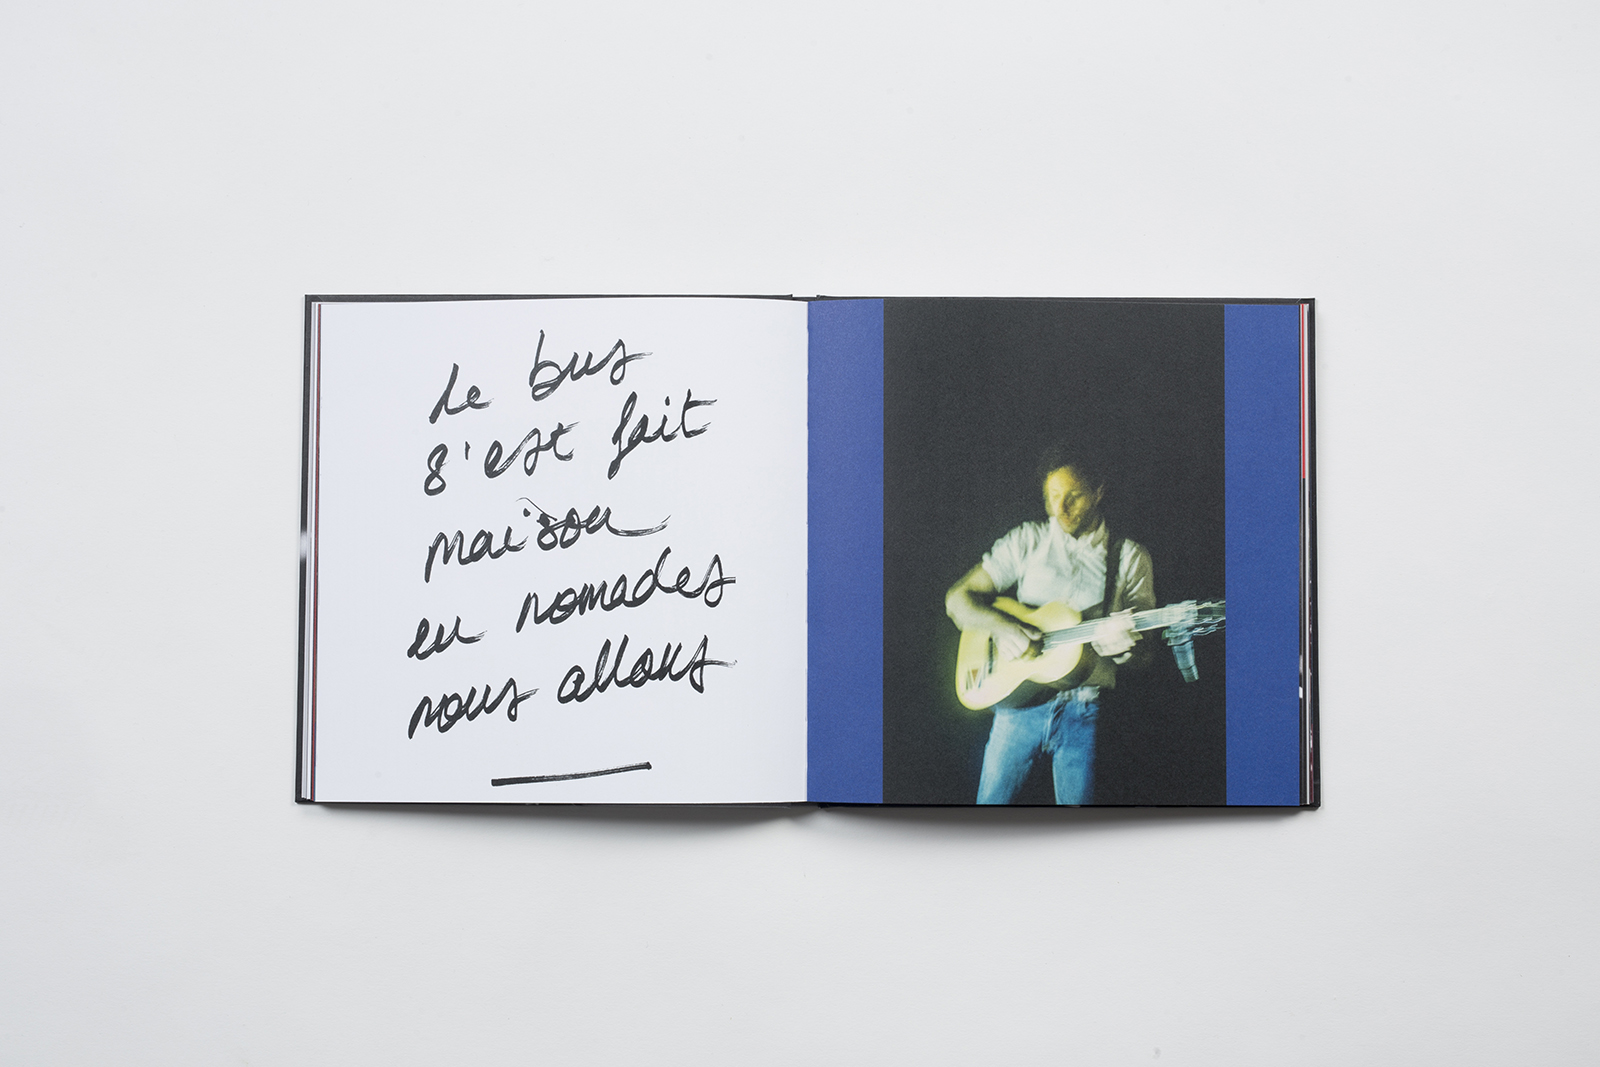 Le bus
s'est fait
maison
en nomades
nous allons